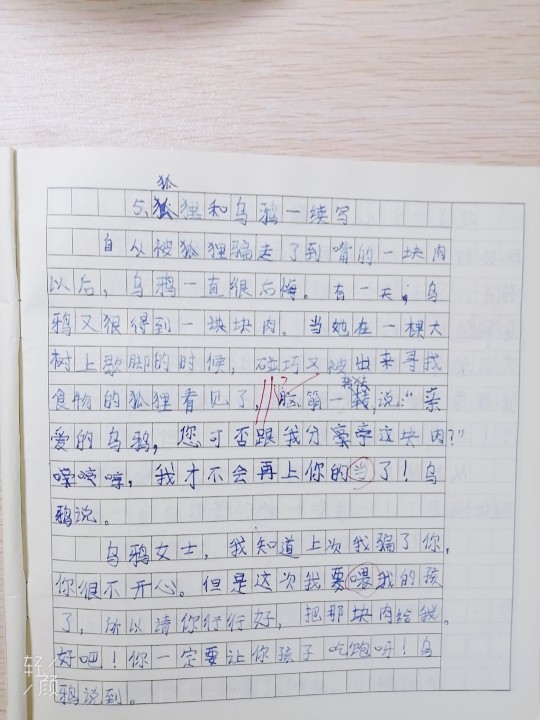 狐
5、狐狸和乌鸦一续写
自从被狐狸骗走了到嘴的一块肉
以后，乌鸦一直很后悔。有一天，乌
鸦又狠得到一块块肉。当她在一棵大
树上歇脚的时候，碰巧又被出来寻找
食物的狐狸看见了，脑筋一转，说：“亲
爱的乌鸦，您可否跟我分享这块肉？”
嘿嘿嘿，我才不会再上你的当了！乌
鸦说。
乌鸦女士，我知道上次我骗了你，
你很不开心。但是这次我要喂我的孩
了，所以请你行行好，把那块肉给我。
好吧！你一定要让你孩子吃饱呀！乌
鸦说到。
轻颜